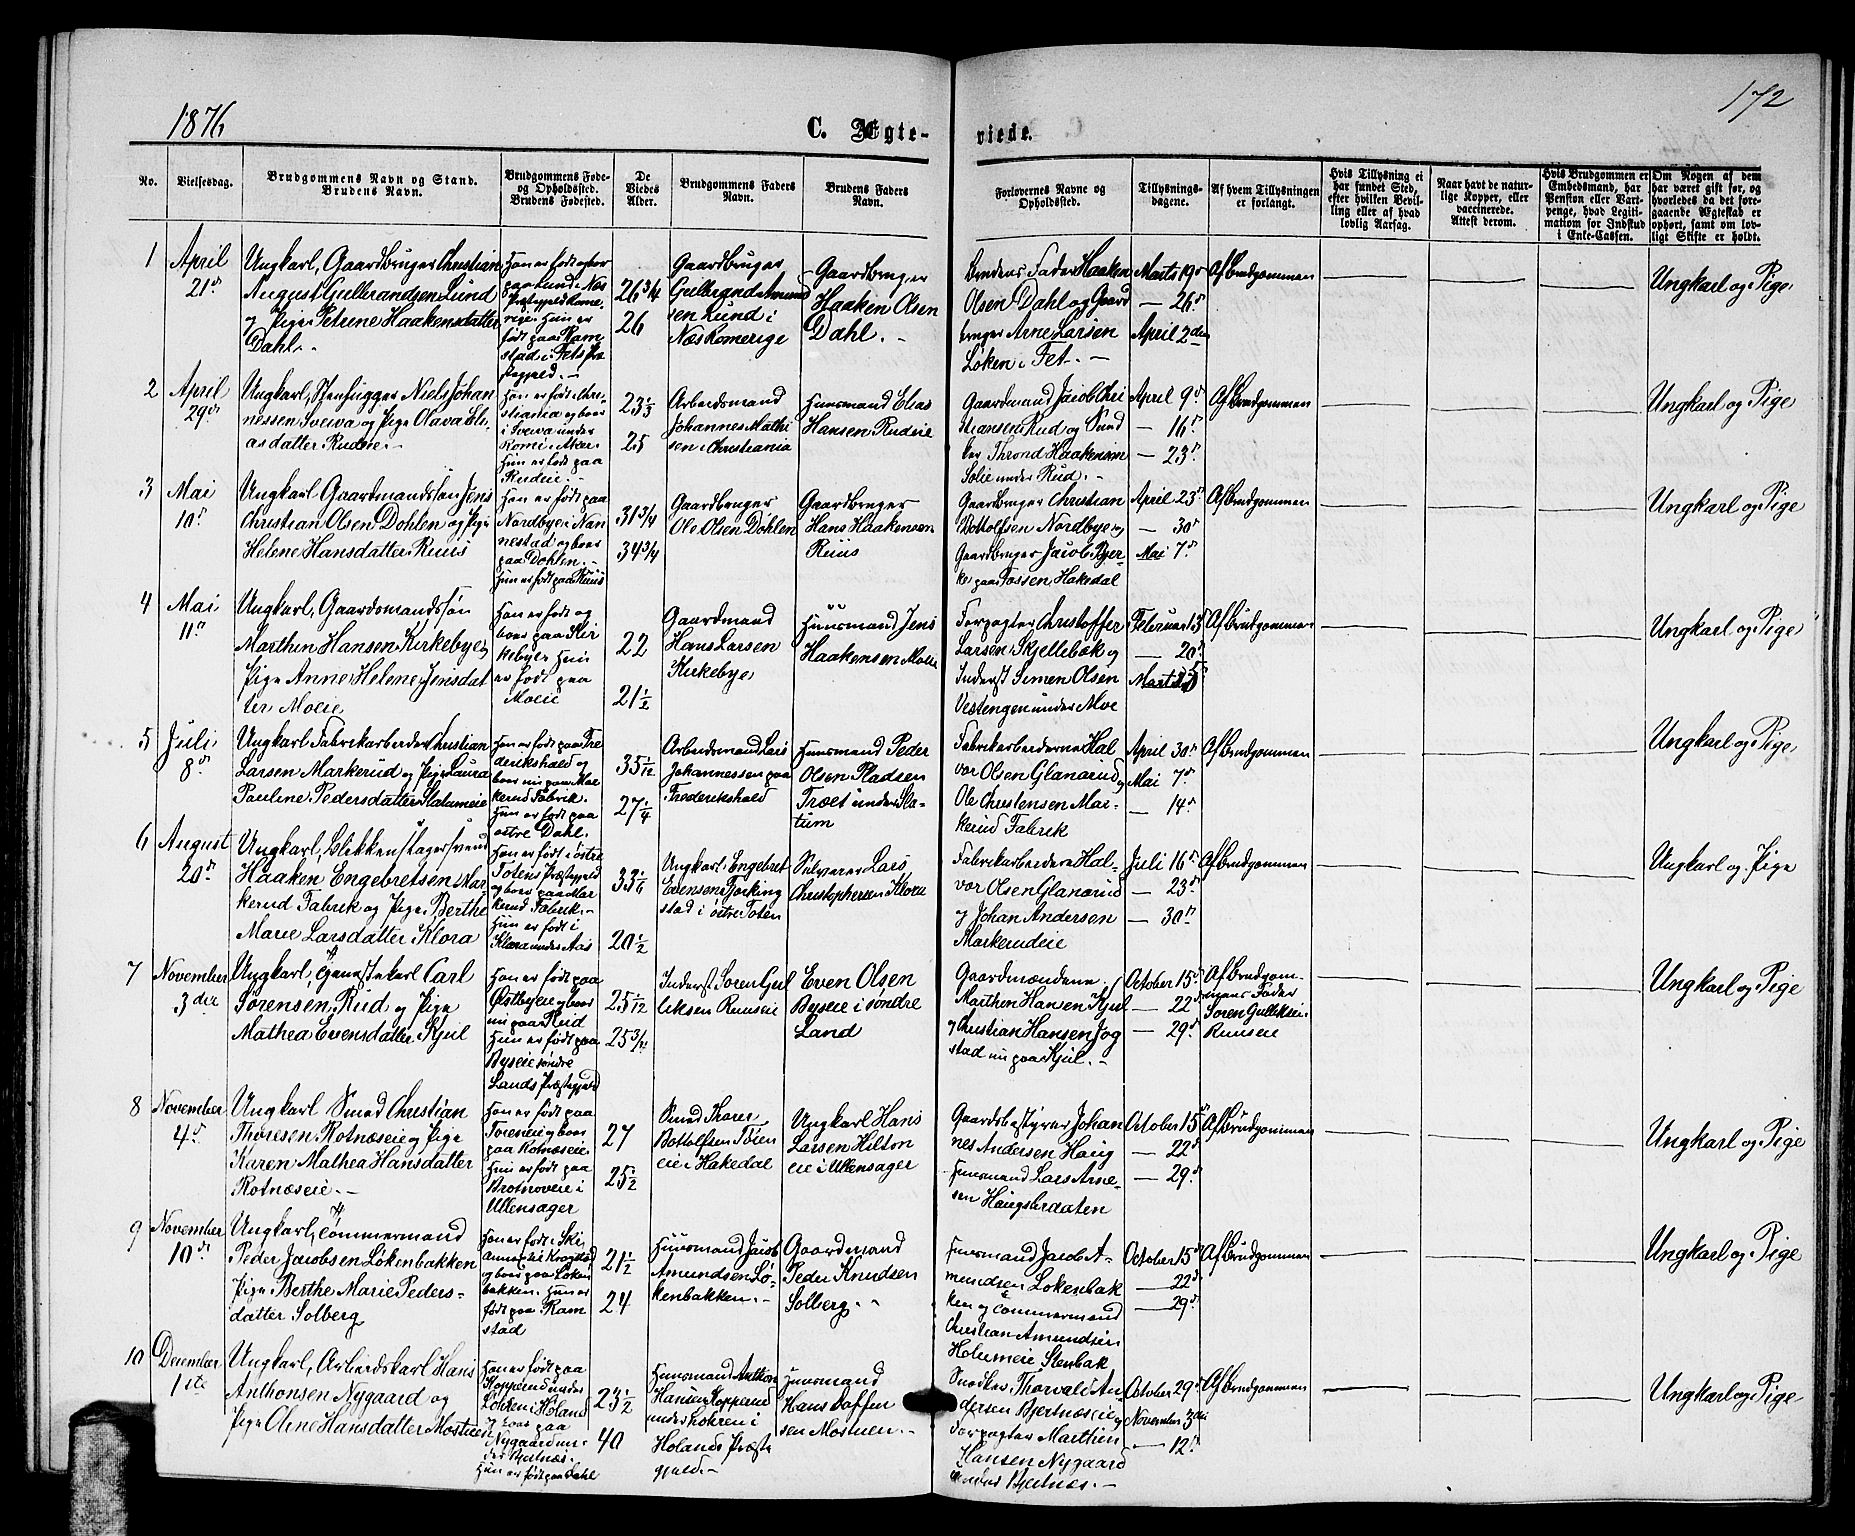 1876
172
C. Ægte-
viede.
No.
Vielsesdag.
Brudgommens Navn og Stand.
Brudens Navn.
Brudgommens Føde-
og Opholdssted.
Brudens Fødested.
De
Viedes
Alder.
Brudgommens Faders
Navn.
Brudens Faders
Navn.
Forlovernes Navne og
Opholdssted.
Tillysnings-
dagene.
Af hvem Tillysningen
er forlangt.
Hvis Tillysning ei
har fundet Sted,
efter hvilken Bevil-
ling eller af hvad
lovlig Aarsag.
Naar havt de natur-
lige Kopper, eller
vaccinerede.
Attest derom.
Hvis Brudgommen er
Embedsmand, har
Pension eller Vart-
penge, hvad Legiti-
mation for Indskud
i Enke-Cassen.
Om Nogen af dem
har været gift før, og
hvorledes da det fore-
gaaende Ægteskab er
ophørt, samt om lov-
ligt Skifte er holdt.
1
April
21de
Ungkarl, Gaardbruger Christian
August Gulbrandsen Lund
og Pige Petrine Haakensdatter
Dahl.
Han er født og bor
paa Lund i Næs
Præstegjeld Rome-
rige. Hun er
født paa Ram
stad i Fets Præ
stegjeld.
26 3/4
26
Gaardbruger
Gulbrand Amund
sen Lund i
Næs Romerige
Gaardbruger
Haaken Olsen
Dahl.
Brudens Fader Haaken
Olsen Dahl og Gaard
bruger Arne Larsen
Løken i Fet.
Marts 19de
— 26de
April 2den
Af Brudgommen
Ungkarl og Pige
2
April
29de
Ungkarl, Stenhugger Niels Johan
nessen Sveiva og Pige Olava Eli-
asdatter Rudeie.
Han er født i Chri-
stiania og boer
i Sveiva under
i Aker.
Hun er født paa
Rudeie.
23 1/3
25
Arbeidsmand
Johannes Mathi
sen i Christiania
Huusmand Elias
Hansen Rudeie
Gaardmand Jacob Chri
stiansen Rud og
Thrond Haakensen
Solie under Rud.
April 9de
— 16de
— 23de
Af Brudgommen
Ungkarl og Pige
3
Mai
10de
Ungkarl Gaardmandssøn Jens
Christian Olsen Dohlen og Pige
Helene Hansdatter Ruus
Han er født paa
Nordbye i Nan
nestad og boer
paa Dohlen.
Hun er født paa Ruus
31 3/4
34 3/4
Gaardbruger
Ole Olsen Dohlen
Gaardbruger
Hans Haakensen
Ruus
Gaardbruger Christian
Bottolfsen Nordbye og
Gaardbruger Jacob Bjer-
ke paa Fossen Hakedal
April 23de
— 30de
Mai 7de
Af Brudgommen
Ungkarl og Pige
4
Mai
11te
Ungkarl, Gaardmandssøn
Marthin Hansen Kirkebye og
Pige Anne Helene Jensdat
ter Moeie
Han er født og
boer paa Kir
kebye. Hun
er født paa
Moeie
22
21 1/2
Gaardmand
Hans Larsen
Kirkebye
Huusmand Jens
Haakensen Moeie
Forpagter Christoffer
Larsen Skjellebæk og
Inderst Simen Olsen
Vestengen under Moe
Februar 13de
— 20de
Marts 5te
Af Brudgommen
Ungkarl og Pige
5
Juli
8de
Ungkarl Fabrikarbeider Christian
Larsen Markerud og Pige Laura
Pauline Pedersdatter Slatumeie
Han er født paa Fre
derikshald og
boer nu paa Mar
kerud Fabrik.
Hun er født paa
østre Dahl.
35 5/12
27 1/4
Arbeidsmand Lars
Johannessen paa
Frederikshald
Huusmand Peder
Olsen Pladsen
Træet under Sla-
tum
Fabrikarbeiderne Hal
vor Olsen Glanerud og
Ole Christensen Mar-
kerud Fabrik
April 30de
Mai 7de
— 14de
Af Brudgommen
Ungkarl og Pige
6
August
20de
Ungkarl, Blikkenslagersvend
Haaken Engebretsen Mar-
kerud Fabrik og Pige Berthe
Marie Larsdatter Klora
Han er født i østre
Totens Præstegjeld
og boer paa Mar
kerud Fabrik.
Hun er født i
Klora under Aas
33 1/6
20 1/2
Ungkarl Engebret
Evensen
stad i østre Toten
Selveier Lars
Christophersen Klora
Fabrikarbeiderne Hal-
vor Olsen Glanerud
og Johan Andersen
Markerudeie
Juli 16de
— 23de
— 30te
Af Brudgommen
Ungkarl og Pige
7
November
3die
Ungkarl, Tjenestekarl Carl
Sørensen Rud og Pige
Mathea Evensdatter Kjul
Han er født paa
Østbyeie og boer
nu paa Rud
Hun er født paa
Byseie søndre
Lands Præstegjeld
25 5/12
25 3/4
Inderst Søren Gul
liksen Ruuseie
Even Olsen
Byseie i søndre
Land
Gaardmændene
Marthin Hansen Kjul
og Christian Hansen Jog
stad nu paa Kjul.
October 15de
— 22de
— 29de
Af Brudgom-
mens Fader
Søren Gulliksen
Ruuseie
Ungkarl og Pige
8
November
4de
Ungkarl Smed Christian
Thoresen Rotnæseie og Pige
Karen Mathea Hansdatter
Rotnæseie.
Han er født paa
Toreseie og boer
paa Rotnæseie.
Hun er født paa
Brotnoveie i
Ullensager
27
25 1/2
Smed Thorer
Bottolfsen Tøien
eie i Hakedal
Ungkarl Hans
Larsen Hilton
eie i Ullensager
Gaardsbestyrer Johan
nes Andersen Haug
Huusmand Lars Arne-
sen Haugsbraaten
October 15de
— 22de
— 29de
Af Brudgommen
Ungkarl og Pige
9
November
10de
Ungkarl, Tømmermand
Peder Jacobsen Løkenbakken
Pige Berthe Marie Peders-
datter Solberg
Han er født i Ski
annex til Kraagstad
og boer paa Løken
bakken. Hun er
født paa Ram
stad
21 1/2
24
Huusmand Jacob
Amundsen Lø-
kenbakken.
Gaardmand
Peder Knudsen
Solberg.
Huusmand Jacob A-
mundsen Løkenbak
ken og Tømmermand
Christian Amundsen
Holumeie Stenbak
October 15de
— 22de
— 29de
Af Brudgommen
Ungkarl og Pige
10
December
1ste
Ungkarl, Arbeidskarl Hans
Anthonsen Nygaard og
Pige Oline Hansdatter Mostuen
Han er født paa
Kopperud under
Løken i Høland
og boer paa
Nygaard un-
der Bjertnæs.
Hun er født paa Dahl
23 1/2
40
Huusmand Anthon
Hansen Kopperud
under Løkren i
Hølands Præste
gjeld.
Huusmand
Hans Doffen
sen Mostuen.
Snedker Thorvald An-
dersen Bjertnæseie og
Forpagter Marthin
Hansen Nygaard
under Bjertnæs.
October 29de
November 3die
— 12te
Af Brudgommen
Ungkarl og Pige